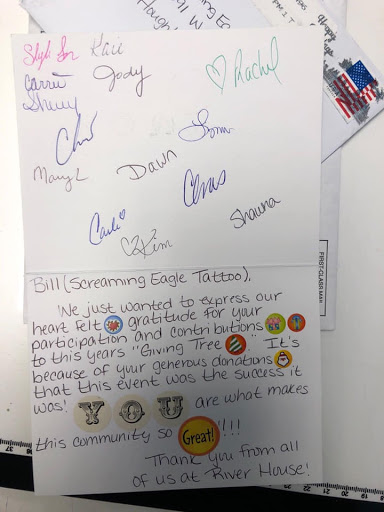 Kaie
Carrie Jody
Sherry
♡Rachel
Chris
Mary L Dawn
Carli
C2Kim Shauna
FIRST-CLASS MAIL
Bill (Screaming Eagle Tattoo),
We just wanted to express our
heart felt gratitude for your
participation and contributions
to this years "Giving Tree". It's
because of your generous donations
that this event was the success it
was! YOU are what makes
this community so Great! !!!
Thank you from all
of us at River House!